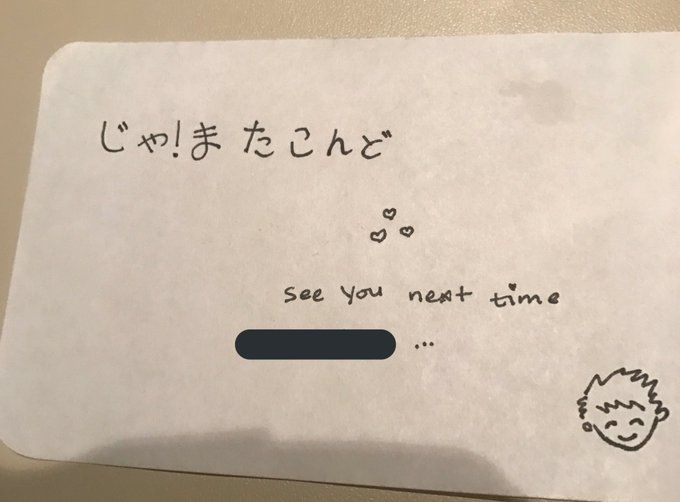 じゃ!またこんど
see you next time
...